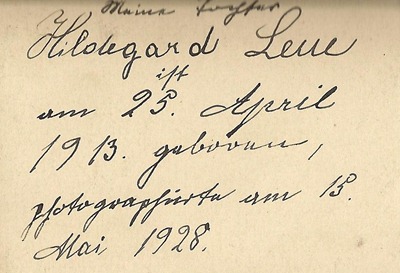 Meine Tochter
Hildegard Leue
ist
am 25. April
1913. geboren,
photographierte am 15.
Mai 1928.